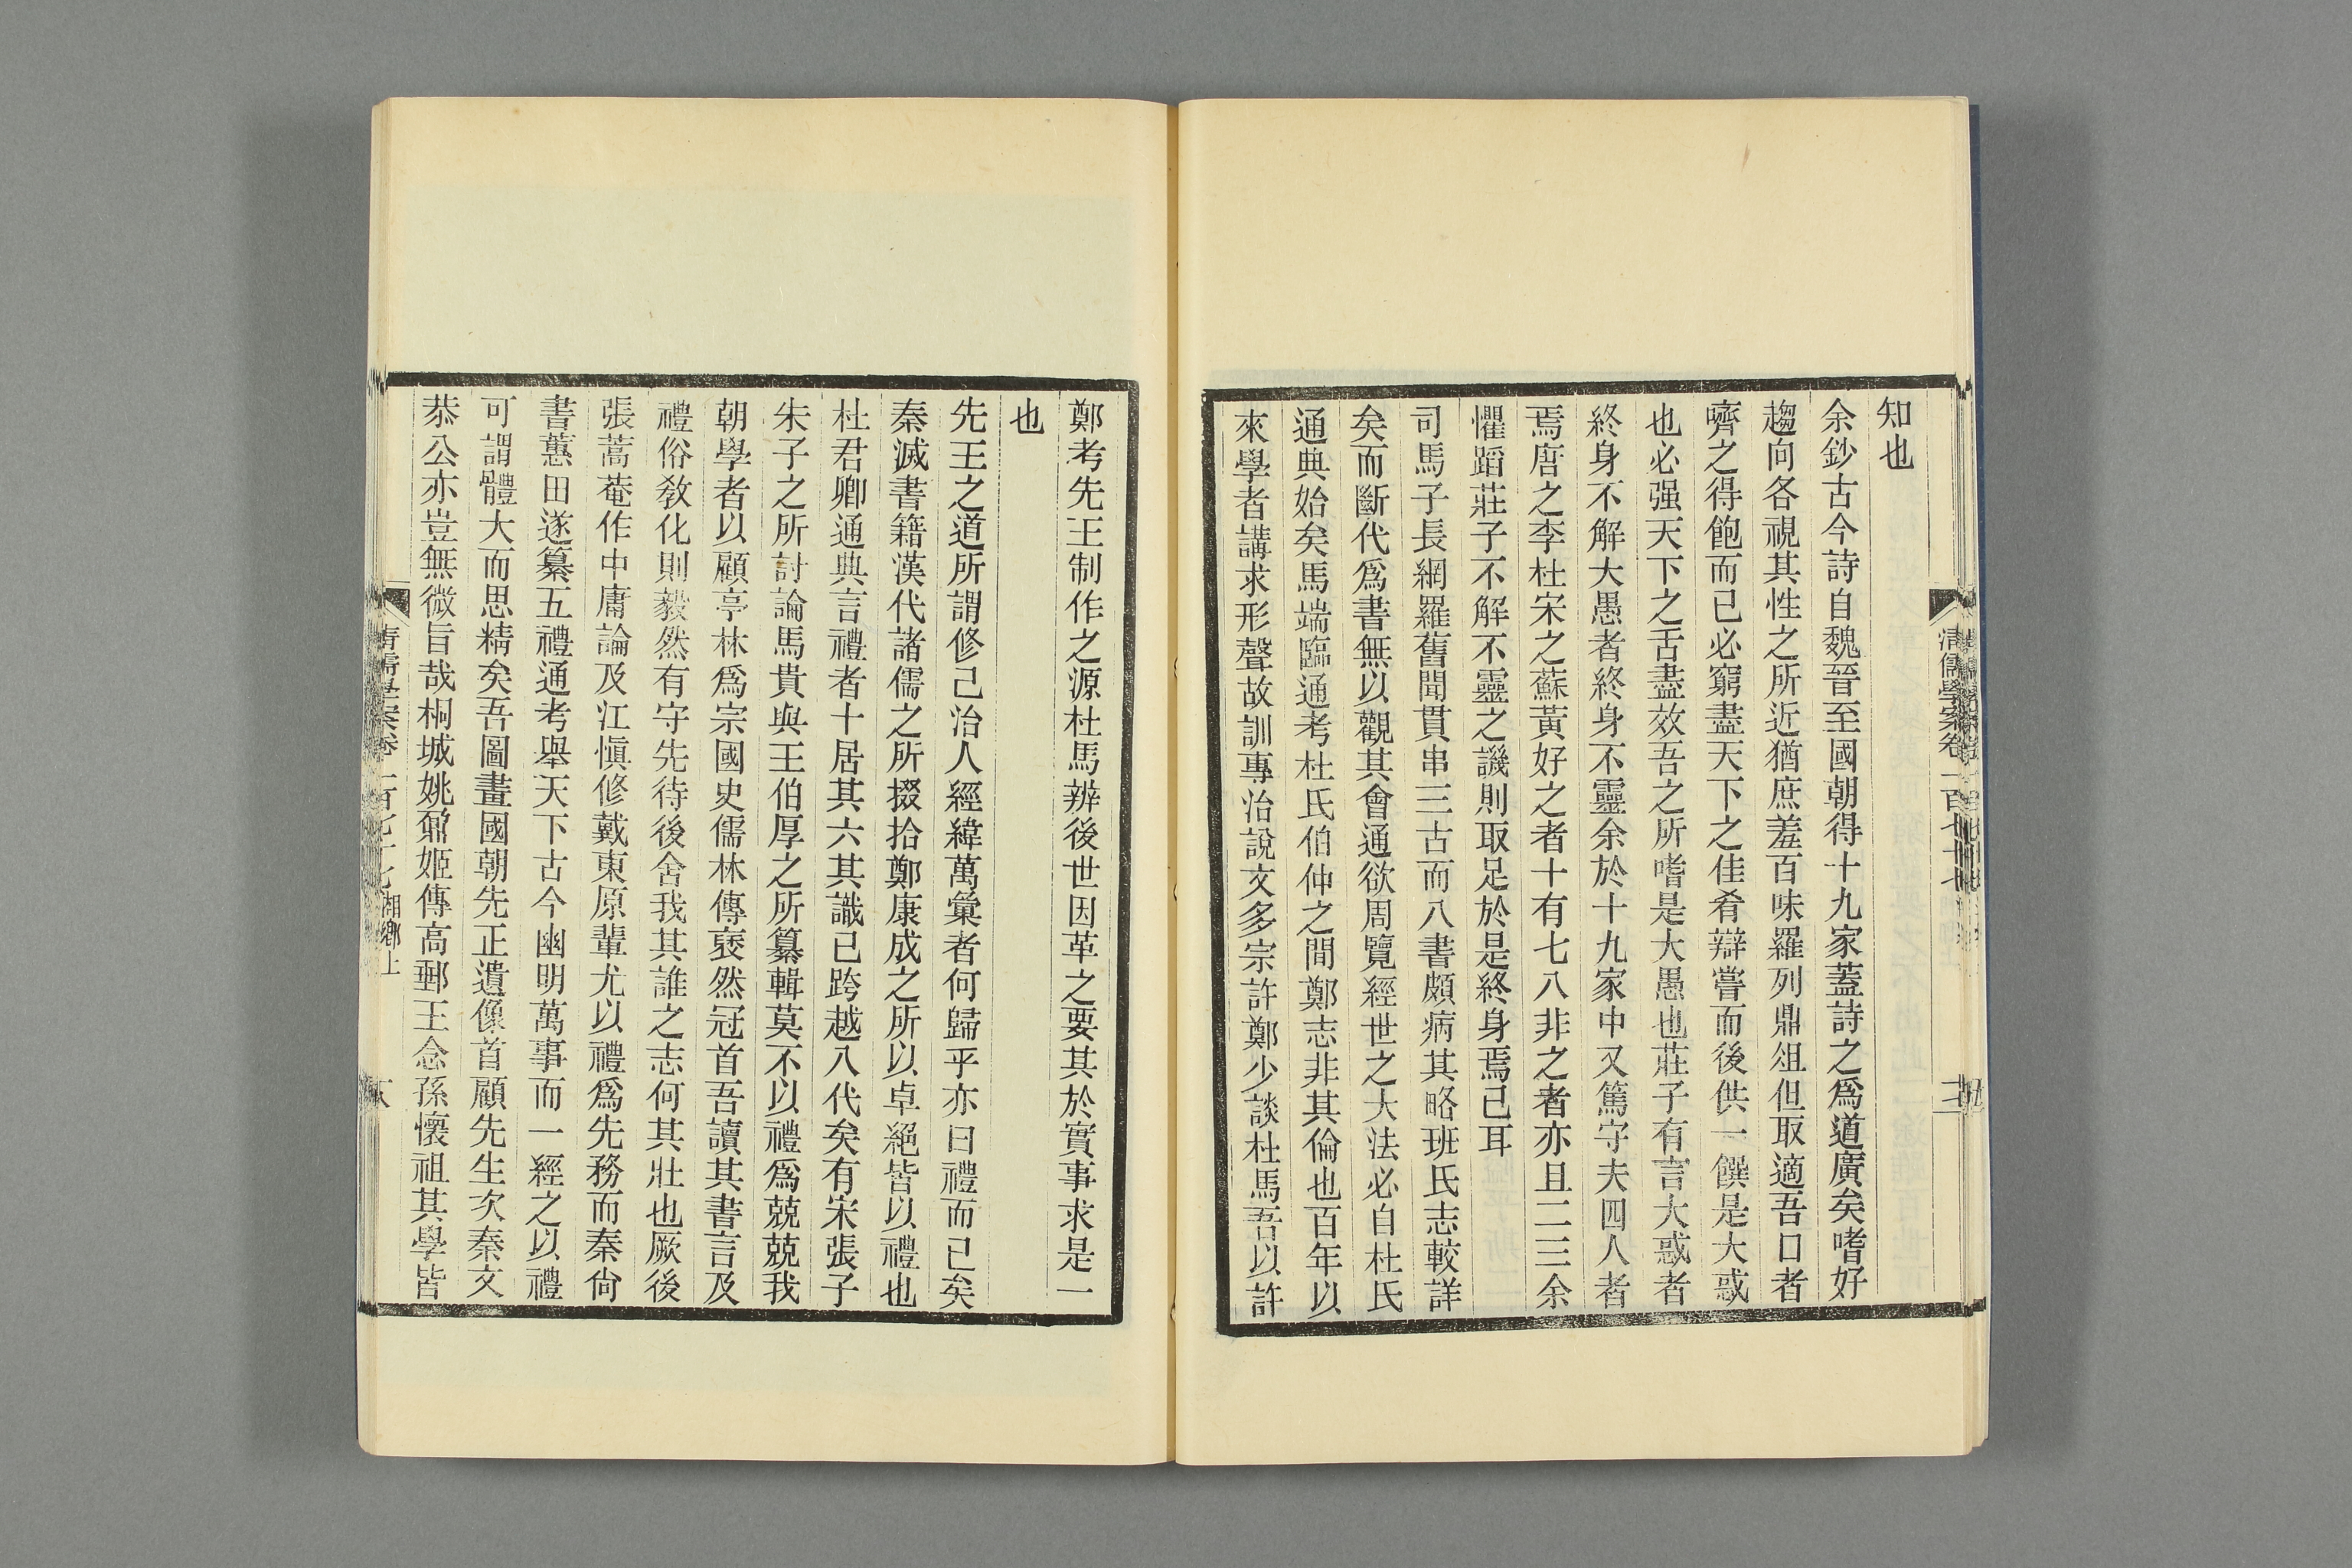 知也
余鈔古今詩自魏晉至國朝得十九家蓋詩之爲道廣矣嗜好
趨向各視其性之所近猶庶羞百味羅列鼎俎但取適吾口者
嚌之得飽而已必窮盡天下之佳肴辯嘗而後供一饌是大惑
也必强天下之舌盡效吾之所嗜是大愚也莊子有言大惑者
終身不解大愚者終身不靈余於十九家中又篤守夫四人者
焉唐之李杜宋之蘇黃好之者十有七八非之者亦且二三余
懼蹈莊子不解不靈之譏則取足於是終身焉已耳
司馬子長網羅舊聞貫串三古而八書頗病其略班氏志較詳
矣而斷代爲書無以觀其會通欲周覽經世之大法必自杜氏
通典始矣馬端臨通考杜氏伯仲之間鄭志非其倫也百年以
來學者講求形聲故訓專治說文多宗許鄭少談杜馬吾以許
鄭考先王制作之源杜馬辨後世因革之要其於實事求是一
也
先王之道所謂修己治人經緯萬彙者何歸乎亦曰禮而已矣
秦滅書籍漢代諸儒之所掇拾鄭康成之所以卓絕皆以禮也
杜君卿通典言禮者十居其六其識已跨越八代矣有宋張子
朱子之所討論馬貴與王伯厚之所纂輯莫不以禮爲兢兢我
朝學者以顧亭林爲宗國史儒林傳褎然冠首吾讀其書言及
禮俗敎化則毅然有守先待後舍我其誰之志何其壯也厥後
張蒿菴作中庸論及江愼修戴東原輩尤以禮爲先務而秦尙
書蕙田遂纂五禮通考舉天下古今幽明萬事而一經之以禮
可謂體大而思精矣吾圖畫國朝先正遺像首顧先生次秦文
恭公亦豈無微旨哉桐城姚鼐姬傳高郵王念孫懷祖其學皆
清儒學案卷一百七十七 湘鄉上